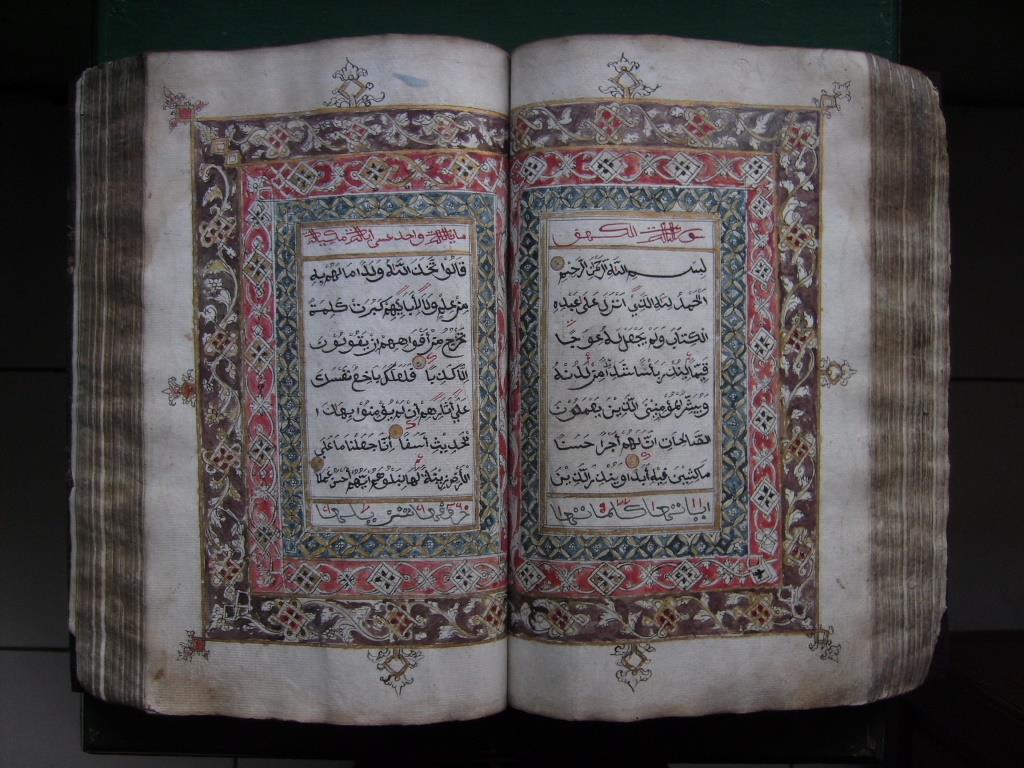 سورة الكهف
بِسْمِ اللَّهِ الرَّحْمَنِ الرَّحِيمِ
الْحَمْدُ لِلَّهِ الَّذِي أَنْزَلَ عَلَى عَبْدِهِ
الْكِتَابَ وَلَمْ يَجْعَلْ لَهُ عِوَجًا
قَيِّمًا لِيُنْذِرَ بَأْسًا شَدِيدًا مِنْ لَدُنْهُ
وَيُبَشِّرَ الْمُؤْمِنِينَ الَّذِينَ يَعْمَلُونَ
الصَّالِحَاتِ أَنَّ لَهُمْ أَجْرًا حَسَنًا
مَاكِثِينَ فِيهِ أَبَدًا وَيُنْذِرَ الَّذِينَ
قَالُوا اتَّخَذَ اللَّهُ وَلَدًا مَا لَهُمْ بِهِ
مِنْ عِلْمٍ وَلَا لِأَبَائِهِمْ كَبُرَتْ كَلِمَةً
تَخْرُجُ مِنْ أَفْوَاهِهِمْ إِنْ يَقُولُونَ
إِلَّا كَذِبًا فَلَعَلَّكَ بَاخِعٌ نَفْسَكَ
عَلَى آثَارِهِمْ إِنْ لَمْ يُؤْمِنُوا بِهَذَا ا
لْحَدِيثِ أَسَفًا إِنَّا جَعَلْنَا مَا عَلَى
الْأَرْضِ زِينَةً لَهَا لِنَبْلُوَهُمْ أَيُّهُمْ أَحْسَنُ عَمَلًا